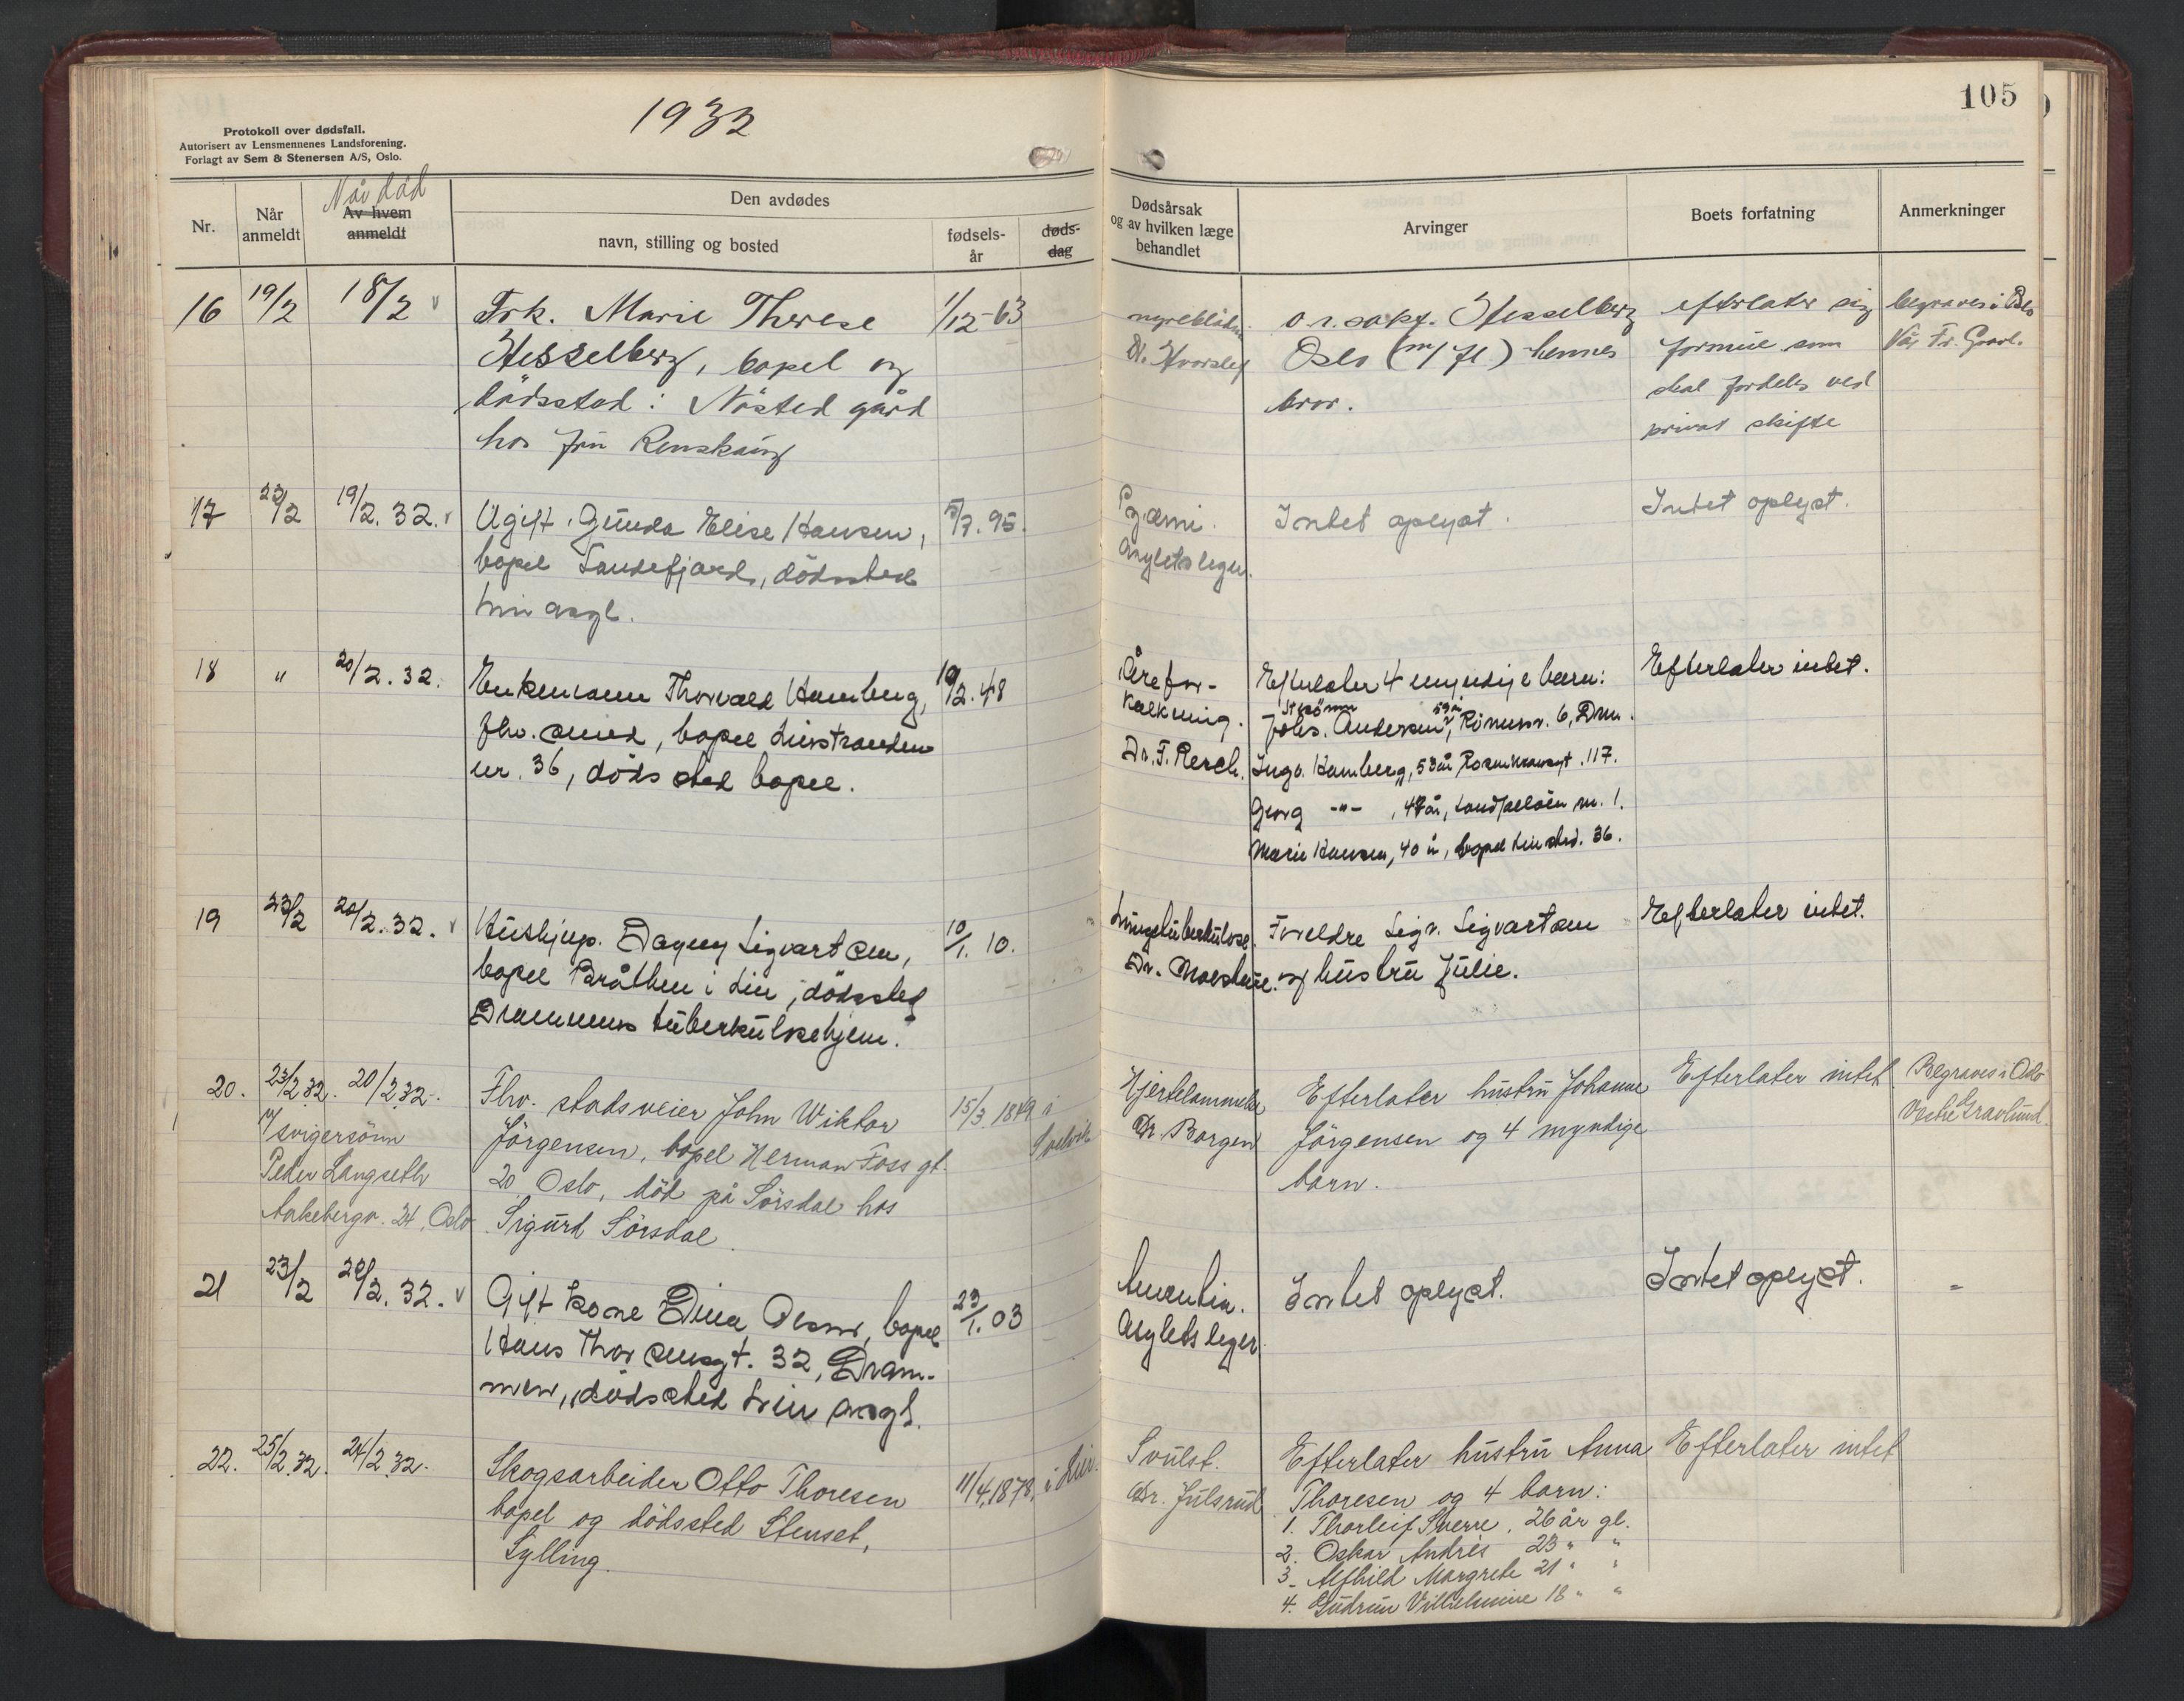 1932
105
Protokoll over dødsfall.
Autorisert av Lensmennenes Landsforening.
Forlagt av Sem & Stenersen A/S, Oslo.
Nr.
Når
anmeldt
Når død
Av hvem
anmeldt
Den avdødes
navn, stilling og bosted
fødsels-
år
døds-
dag
Dødsårsak
og av hvilken læge
behandlet
Arvinger
Boets forfatning
Anmerkninger
16 19/2 18/2 Frk. Marie Therese 1/12-63
Hesselberg, bopel og
dödsstad: Nösted gård
hos fru
o.r.sakf. Hesselberg
Oslo (m/fl.) hennes
bror.
efterlater sig
formue som
skal fordeles ved
privat skifte
begraves i Oslo
Vår Fr. Gravl.
17 23/2 19/2. 32. Ugift Gunda Elise Hansen, 5/7. 95.
bopel Sandefjord, dödssted
Lier asyl.
Pyæmi.
Asylets leger.
Intet oplyst.
Intet oplyst.
18 " 20/2. 32. Enkemann Thorvald Hamberg, 19/2. 48
fhv. , bopel Lierstranden
nr. 36, dödssted bopel.
Årefor-
kalkning.
Dr. F. Lerch.
Efterlater 4 myndige barn:
Johs. Andersen, 6, Drm.
Ingv. Hamberg, 53 år, Rosenkransgt. 117.
Georg -"- , 47 år, nr. 1.
Marie Hansen, 40 år, bopel Lierstrd. 36.
Efterlater intet.
19 23/2 20/2. 32. Husbjelp. Dagny Sigvartsen, 10/1. 10.
bopel Bråthen i Lier, dödssted
Drammens tuberkulosehjem.
Lungetuberkulose.
Dr.
Foreldre Sigv. Sigvartsen
og hustru Julie.
Efterlater intet.
20. 23/2 32. 20/2 32. Fhv. stadsveier John Wiktor 15/3 1849 i
Svelvik
v/ svigersönn
Peder Langseth
Aakebergv. 24, Oslo
Jörgensen, bopel Herman Foss gt.
20 Oslo, död på Sörsdal hos
Sigurd Sörsdal.
Hjertelammelse
Dr. Borgen
Efterlater hustru Johanne
Jörgensen og 4 myndige
barn.
Efterlater intet
Begraves i Oslo
Vestre Gravlund.
21 23/2 20/2. 32. Gift kone Dina Olsen, bopel 23/1. 03
Hans Thoresensgt. 32, Dram-
men, dödssted Lier asyl.
Amentia.
Asylets leger
Intet oplyst.
Intet oplyst.
-
22. 25/2 32. 24/2 32. Skogsarbeider Otto Thoresen 11/4 1878, i Lier.
bopel og dödssted Stenset,
Sylling.
Svulst.
Dr. Julsrud
Efterlater hustru Anna
Thoresen og 4 barn:
1. Thorleif Sverre, 26 år gl.
2. Oskar Andrés 23 " "
3. Alfhild Margrete 21 " "
4. Gudrun Vilhelmine 18 " "
Efterlater intet